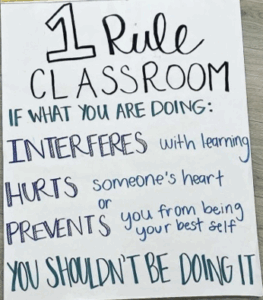 1 Rule
CLASSROOM
IF WHAT YOU ARE DOING:
INTERFERES with learning
HURTS someone's heart
or
PREVENTS you from being
your best self
YOU SHOULDN'T BE DOING IT